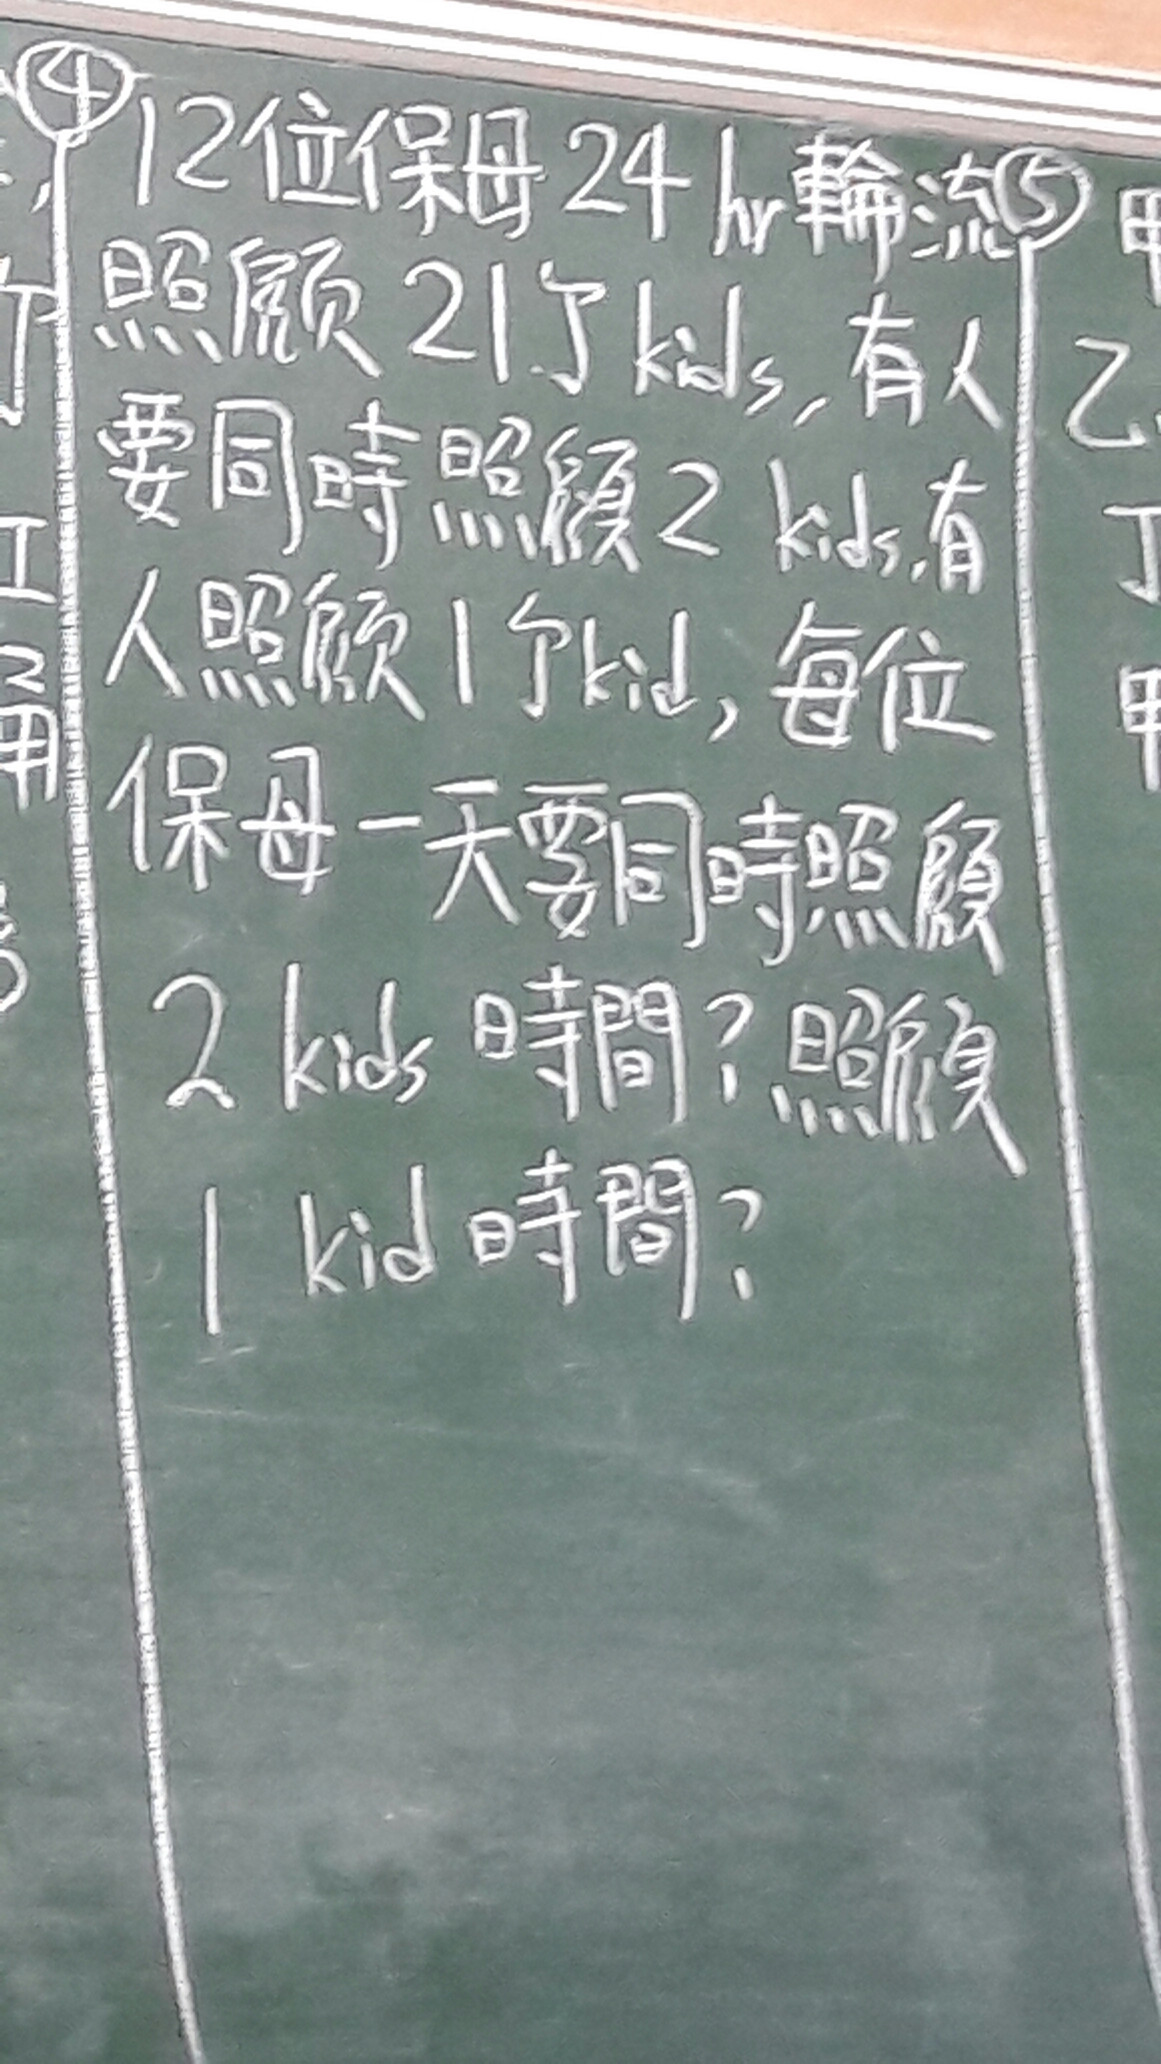 ④ 12位保母24 hr輪流
照顧21个kids,有人
要同時照顧2 kids,有
人照顧1个kid,每位
保母一天要同時照顧
2 kids 時間?照顧
1 kid 時間?
⑤ 甲
乙
丁
甲